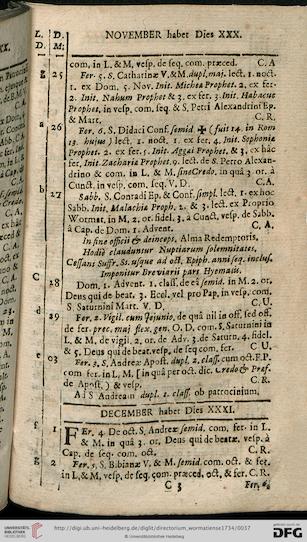 L. D. NOVEMBER habet Dies XXX.
D. M.
com, in L. & M, vesp. de seq. com. præced. C. A
g 25 Fer. 5. S. Catharinæ V. & M. dupl. maj. lect. 1. noct.
1. ex Dom. 5. Nov. Init. Michea Prophet. 2. ex fer-
2. Init. Nahum Prophet & 3. ex fer. 3. Init. Habacuc
Prophet, in vesp. com, seq. & S. Petri Alexandrini Ep.
& Mart. C. R.
a 26 Fer. 6. S. Didaci Conf. semid ✠ (fuit 14. in Rom
13. hujus) lect. 1. noct. 1. ex fer. 4. Init. Sophonia
Prophet. 2. ex fer. 5. Init. Aggai Prophet, & 3. ex hac
fer. Init. Zacharia Prophet. 9. lect. de S. Petro Alexan-
drino & com. in L. & M. sine Credo, in quâ 3. or. à
Cunct. in vesp. com. seq. V. D. C. A.
b 27 Sabb. S. Conradi Ep. & Conf. simpl. lect. 1. ex hoc
Sabb. Init. Malachia Proph. 2. & 3. lect. ex Proprio
Wormat, in M, 2. or. fidel. 3. à Cunct. vesp. de Sabb.
à Cap. de Dom. 1. Advent. C. A.
In fine officii & deinceps, Alma Redemptoris,
Hodiè clauduntur Nuptiarum solemnitates,
Cessans Suffr. SS. usque ad oct, Epiph. anni seq. inclus.
Imponitur Breviarii pars Hyemalis.
C 28 Dom. 1. Advent. 1. class. de eâ semid. in M. 2. or,
Deus qui de beat. 3. Eccl. vel pro Pap, in vesp. com.
S. Saturnini Mart. V. D. C. U.
d 29 Fer. 2. Vigil. cum Jejunio, de quâ nil in off. sed off.
de fer. prec. maj. flex. gen. O. D. com. S. Saturnini in
L. & M, de vigil. 2. or. de Adv. 3. de Saturn. 4. fidel.
& 5. Deus qui de beat. vesp. de seq com. fer. C U.
e 30 Fer. 3. S. Andreæ Apost. dupl. 2. class. cum oct. F. P.
com. fer. in L, M. [in quâ per oct. dic. Credo & Præf.
de Apost,) & vesp. C. R.
Ad S Andream dupl. 1. class, ob patrocinium,
DECEMBER habet Dies XXXI.
f 1 FEr. 4. De oct. S, Andreæ semid. com. fer. in L.
& M. in quâ 3. or. Deus qui de beatæ. vesp. à
Cap. de seq. com. oct. C. R.
g 2 Fer. 5. S. Bibianæ V. & M. semid. com. oct. & fer.
in L, & M, vesp, de seq. com. præced. oct, & fer. C. R.
C 3 Fer. 6.
UNIVERSITÄTS-
BIBLIOTHEK
HEIDELBERG
http://digi.ub.uni-heidelberg.de/diglit/directorium_wormatiense1734/0037
© Universitätsbibliothek Heidelberg